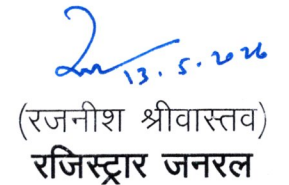 13.5.2026
(रजनीश श्रीवास्तव)
रजिस्ट्रार जनरल